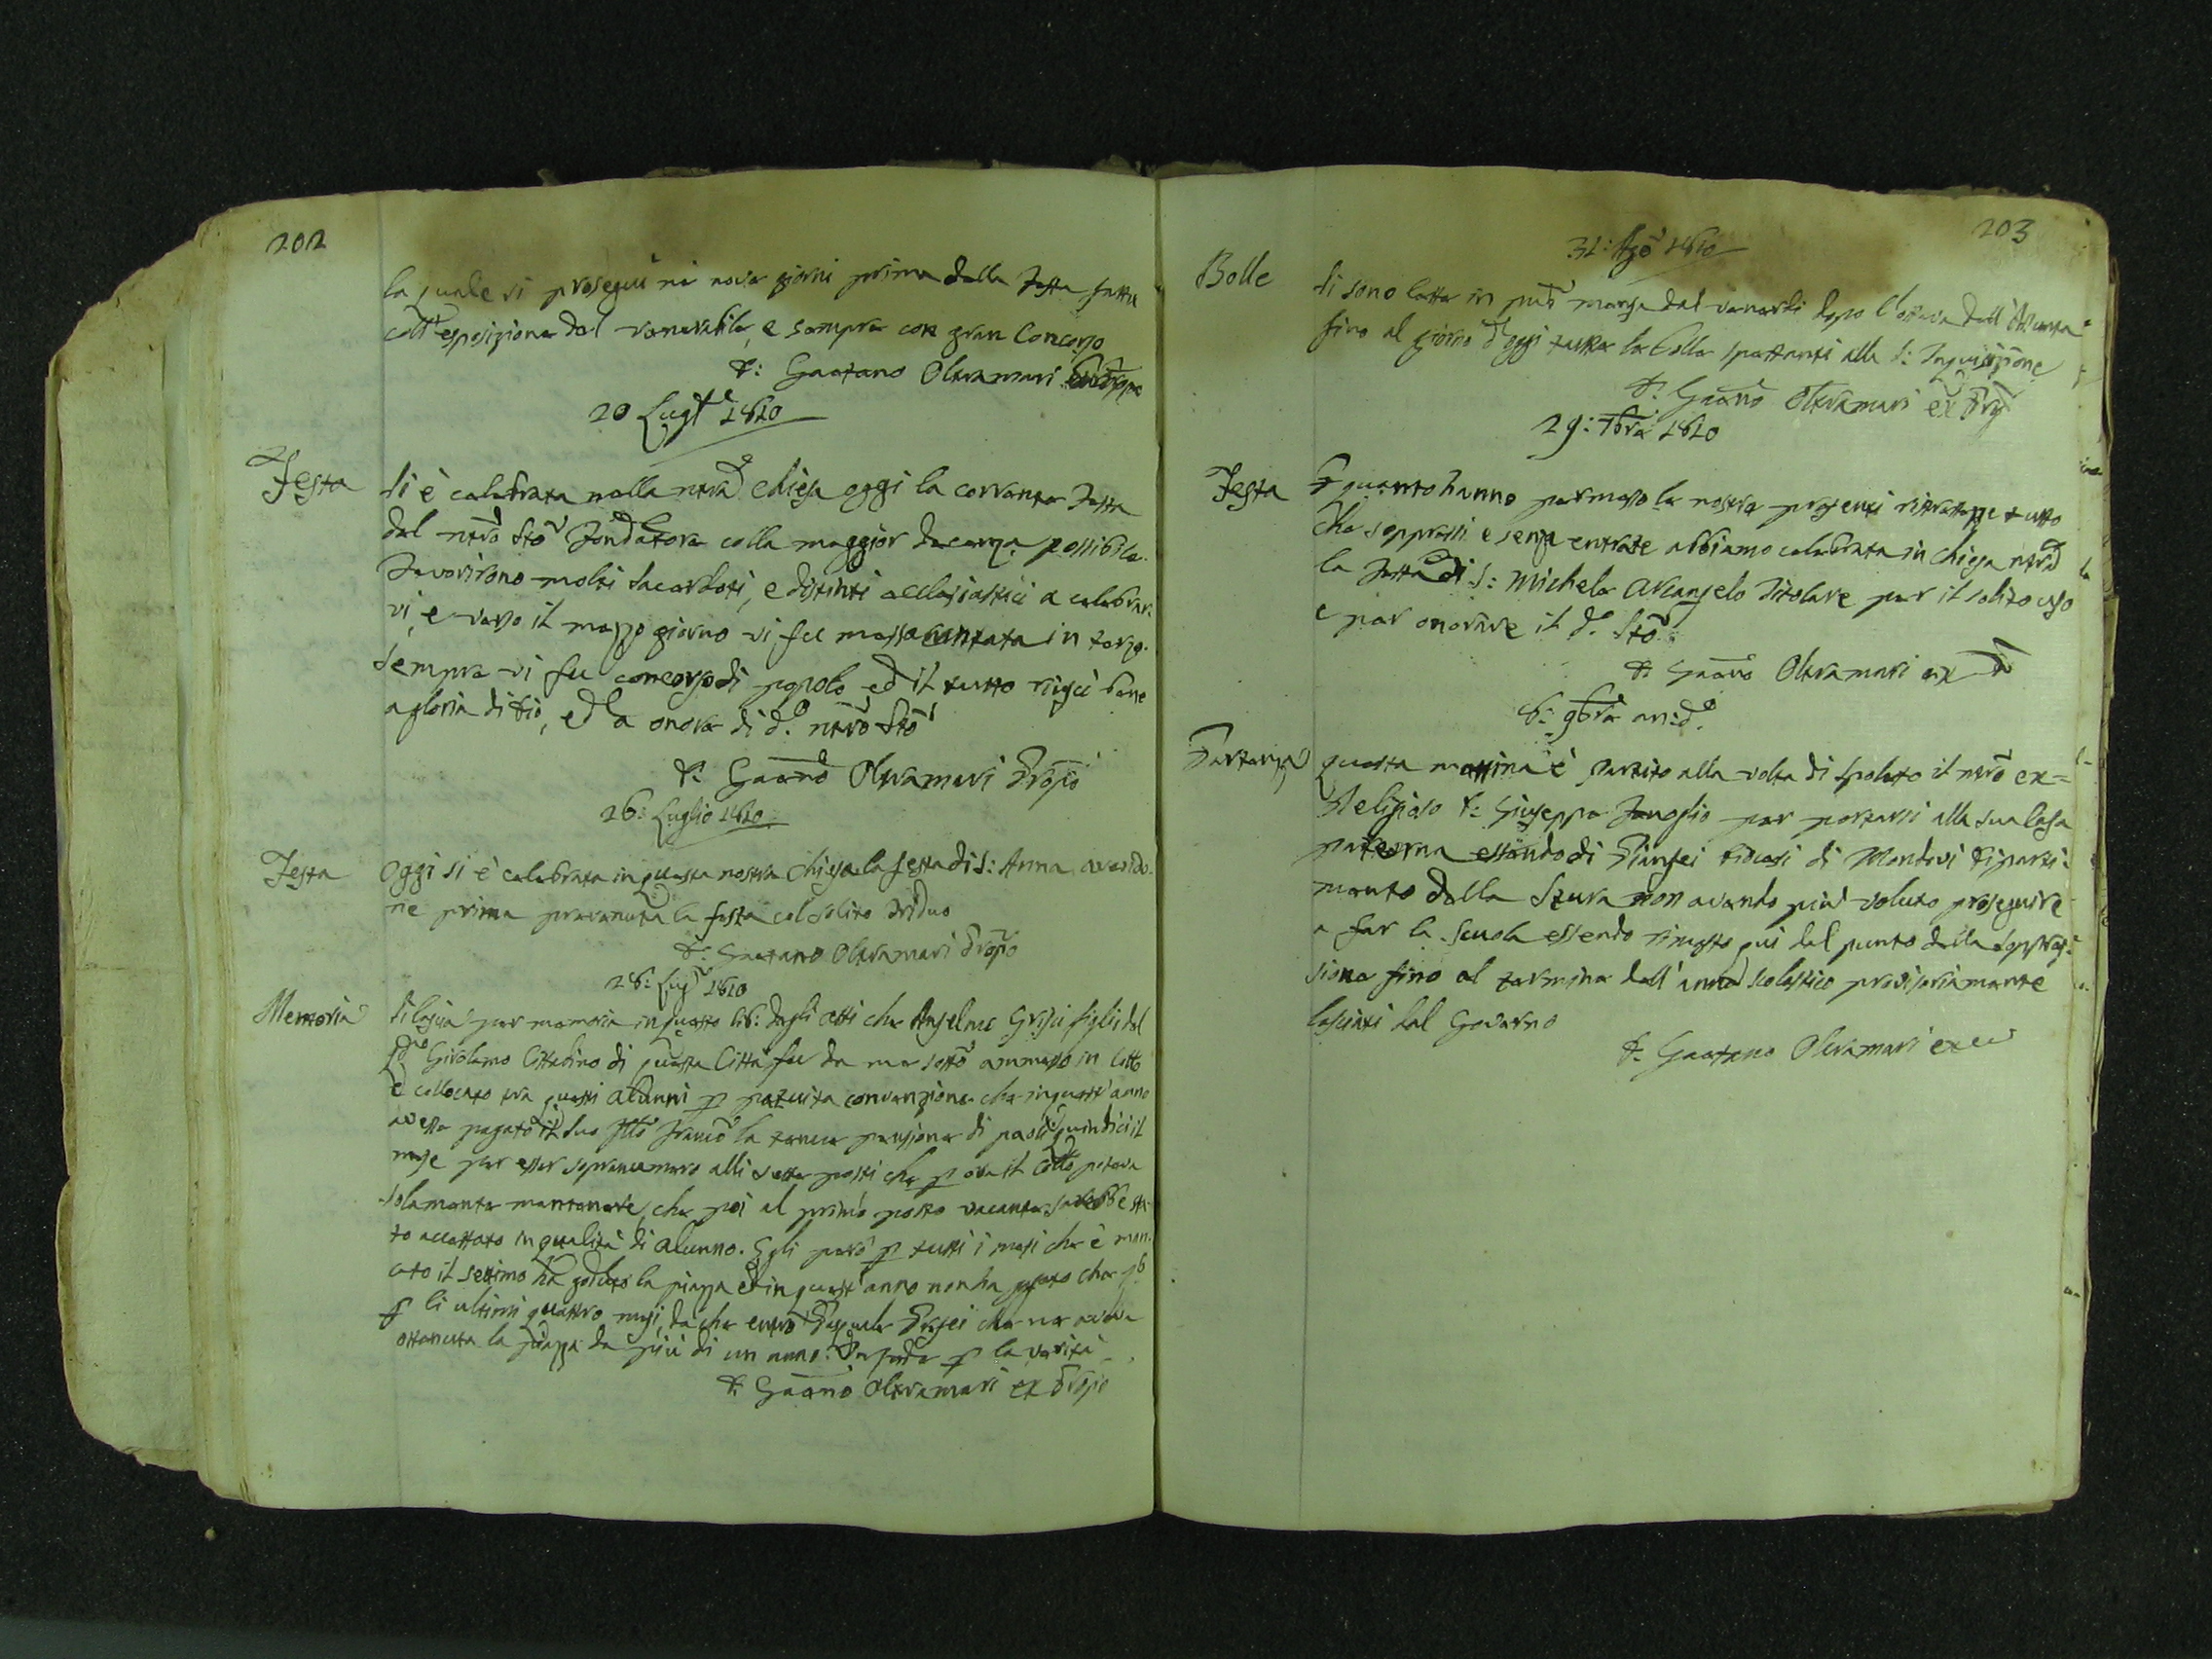 202
la quale si proseguì ne nove giorni prima della Festa fatta
coll'esposizione del venerabile, e sempre con gran Concorso
D: Gaetano Oltremari
20 Lug.° 1810
Festa
Si è celebrata nella nrã Chiesa oggi la corrente Festa
del nrõ Stõ Fondatore colla maggior decenza possibile.
Favorirono molti Sacerdoti, e distinti ecclesiastici a celebrar-
vi, e verso il mezzo giorno vi fu messa cantata in terzo.
Sempre vi fu concorso di popolo ed il tutto riuscì bene
a gloria di Dio, ed a onore di d.° nrõ Stõ
D: Gaãno Oltremari Propõ
26: Luglio 1810
Festa
Oggi si è celebrata in questa nostra Chiesa la festa di S: Anna avendo-
ne prima prevenuta la festa col solito Triduo
D: Gaetano Oltremari Propõ
28: Lug° 1810
Memoria
Si lascia per memoria in questo lib: degli atti che Anselmo Grisci figlio del
Girolamo Cittadino di questa Città fu da me sottõ ammesso in Collõ
e collocato tra questi alunni p patuita convenzione che in quest'anno
avesse pagato il suo la tenue pensione di paoli quindici il
mese per esser sopranumero alli sette posti che p ora il Collõ poteva
solamente mantenere, che poi al primo posto vacante sarebbe sta-
to accettato in qualità di alunno. Egli però p tutti i mesi che è man-
cato il settimo ha goduto la piazza ed in quest'anno non ha pagato che
p li ultimi quattro mesi, da che entrò Pasquale che ne aveva
ottenuta la piazza da più di un anno. In fede p la verità
D: Gaãno Oltremari ex Propõ
203
31: Agõ 1810
Bolle
Si sono lette in mensa dal venerdì dopo l'ottava dell'
fino al giorno d'oggi tutte le bolle spettanti alla S: Inquisizione
D: Gaãno Oltremari ex
29: 7bre 1810
Festa
P quanto hanno permesso le nostre presenti ristrettezze tutto
che soppressi e senza entrate abbiamo celebrata in Chiesa nrã
la Festa di S: Michele Arcangelo Titolare per il solito uso
e per onorare il d.° Stõ
D: Gaãno Oltremari ex
8: 9bre an: d.°
Partenza
Questa mattina è partito alla volta di Spoleto il nrõ ex=
Religioso D: Giuseppe Fenoglio per portarsi alla sua Casa
paterna essendo di Pianfei Diocesi di Mondovì Diparti-
mento della Stura non avendo più voluto proseguire
a far la scuola essendo rimasto qui dal punto della soppres-
sione fino al termine dell'anno scolastico provisoriamente
lasciati dal Governo
D: Gaetano Oltremari ex